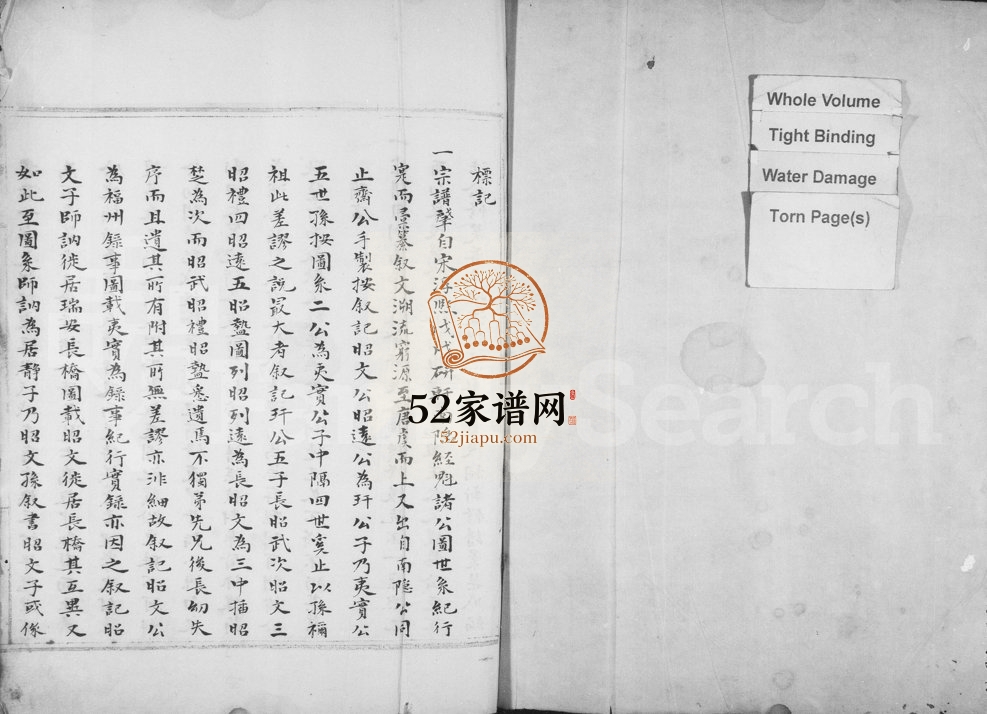 標記
一宗譜肇自宋淳熙戊戌研隱經魁諸公圖世系紀行
寔而彙纂叙文溯流窮源至唐虞而上又出自南隱公同
止齋公手製按叙記昭文公昭遠公為玕公子乃夷實公
五世孫按圖系二公為夷實公子中隔四世寞止以孫禰
祖此差謬之說最大者叙記玕公五子長昭武次昭文三
昭禮四昭遠五昭盩圖列昭列遠為長昭文為三中插昭
楚為次而昭武昭禮昭盩悉遺焉不獨弟先兄後長幼失
序而且遺其所有附其所無差謬亦非細故叙記昭文公
為福州錄事圖載夷實為錄事紀行實錄亦因之叙記昭
文子師訥徙居瑞安長橋圖載昭文徙居長橋其互異又
如此至圖系師訥為居靜子乃昭文孫叙書昭文子或係
Whole Volume
Tight Binding
Water Damage
Torn Page(s)
52家谱网
52jiapu.com